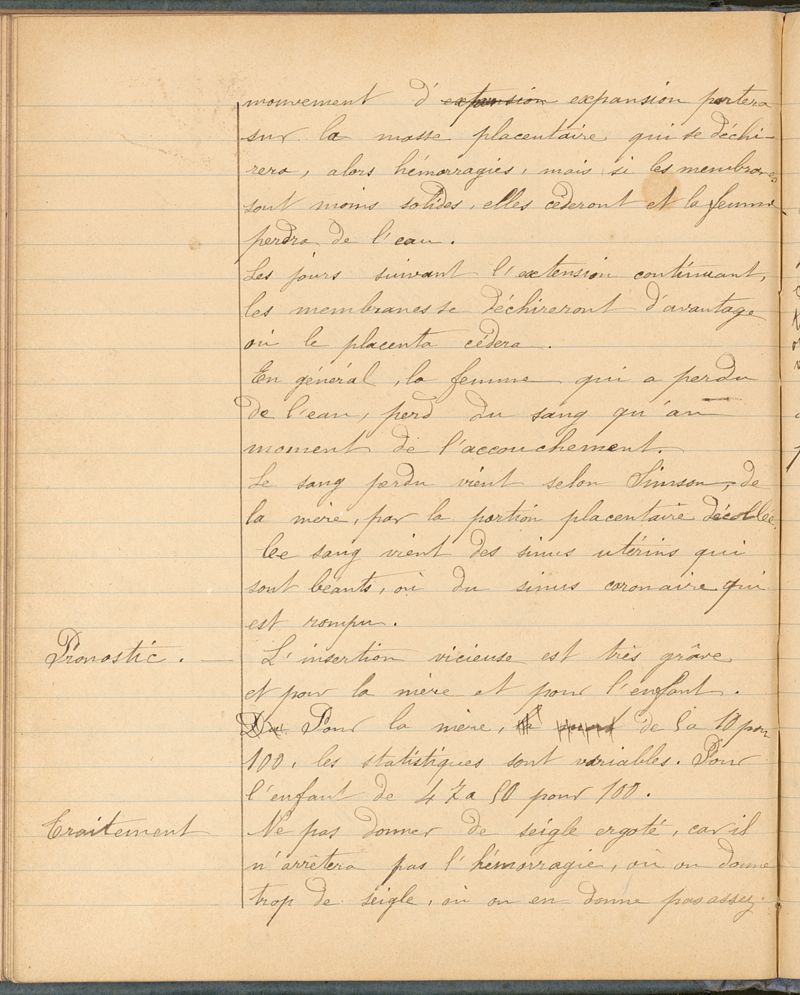 mouvement d' expansion expansion portera
sur la masse placentaire qui se déchi-
rera, alors hémorragies, mais si les membranes
sont moins solides, elles cèderont et la femme
perdra de l'eau.
Les jours suivant l'extension continuant,
les membranes se déchireront d'avantage
où le placenta cédera.
En général, la femme qui a perdu
de l'eau, perd du sang qu'au
moment de l'accouchement.
Le sang perdu vient selon Simson, de
la mère, par la portion placentaire décollée.
Ce sang vient des sinus utérins qui
sont béants, où du sinus coronaire qui
est rompu.
Pronostic. — L'insertion vicieuse est très grâve
et pour la mère et pour l'enfant.
Pour la mère, de 5 a 10 pour
100, les statistiques sont variables. Pour
l'enfant de 47 a 50 pour 100.
Traitement Ne pas donner de seigle ergoté, car il
n'arrêtera pas l'hémorragie, où on donne
trop de seigle, où on en donne pas assez.